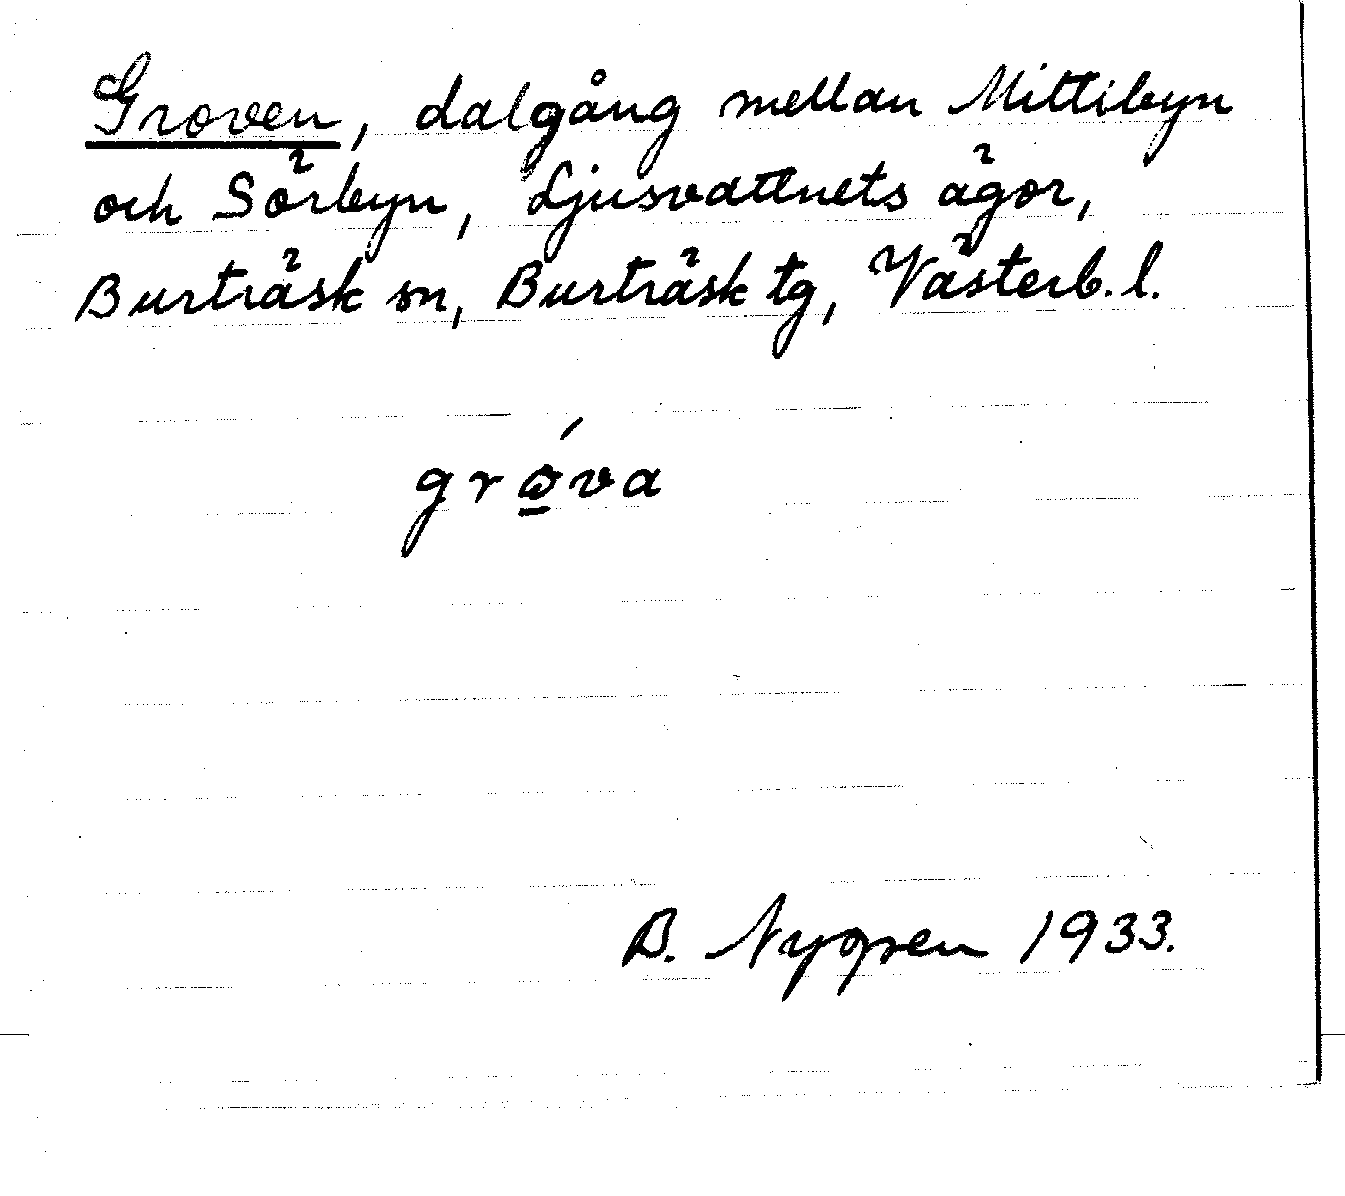 Groven, dalgång mellan Mittibyn
och Sörbyn, Ljusvattnets ägor,
Burträsk sn, Burträsk tg, Västerb. l.
B. Nygren 1933.